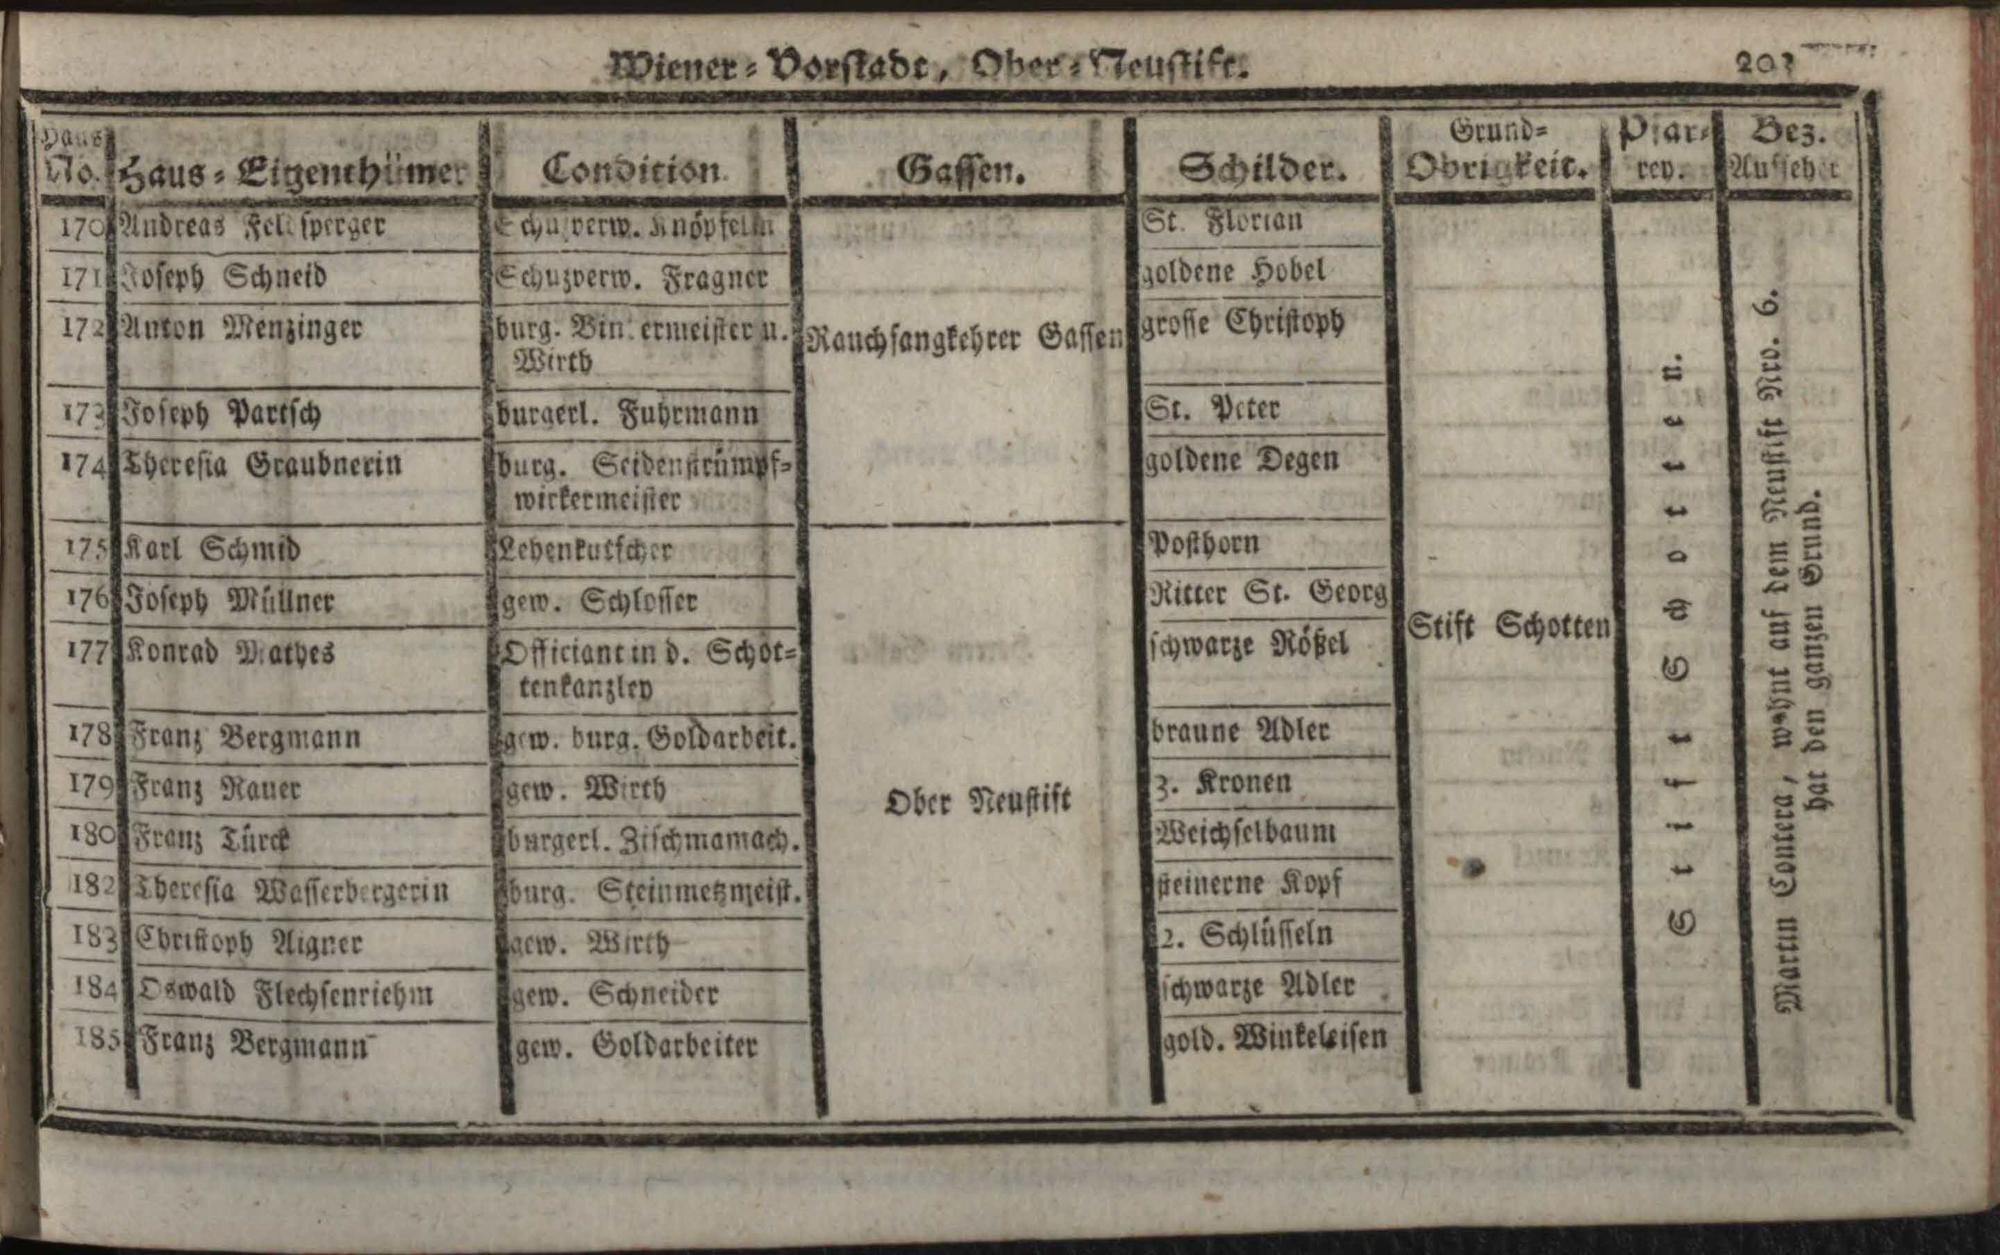 Wiener-Vorstadt, Ober-Neustift. 203
Haus No. Haus-Eigenthümer Condition. Gassen. Schilder. Grund-Obrigkeit. Pfar-rey. Bez. Aufseher
170 Andreas Feldsperger Schuzverw. Knöpfelm St. Florian
171 Joseph Schneid Schuzverw. Fragner goldene Hobel
172 Anton Menzinger burg. Bindermeister u. Rauchfangkehrer Gassen grosse Christoph
Wirth
173 Joseph Partsch burgerl. Fuhrmann St. Peter
174 Theresia Graubnerin burg. Seidenstrümpf- goldene Degen
wirkermeister
175 Karl Schmid Lehenkutscher Posthorn
176 Joseph Müllner gew. Schlosser Ritter St. Georg
Stift Schotten
177 Konrad Mathes Officiant in d. Schot- schwarze Rößel
tenkanzley
178 Franz Bergmann gew. burg. Goldarbeit. braune Adler
179 Franz Rauer gew. Wirth 3. Kronen
Ober Neustift
180 Franz Türck burgerl. Zischmamach. Weichselbaum
182 Theresia Wasserbergerin burg. Steinmetzmeist. steinerne Kopf
183 Christoph Aigner gew. Wirth 2. Schlüsseln
184 Oswald Flechsenriehm gew. Schneider schwarze Adler
185 Franz Bergmann gew. Goldarbeiter gold. Winkeleisen
Stift Schotten.
Martin Contera, wohnt auf dem Neustift Nro. 6.
hat den ganzen Grund.